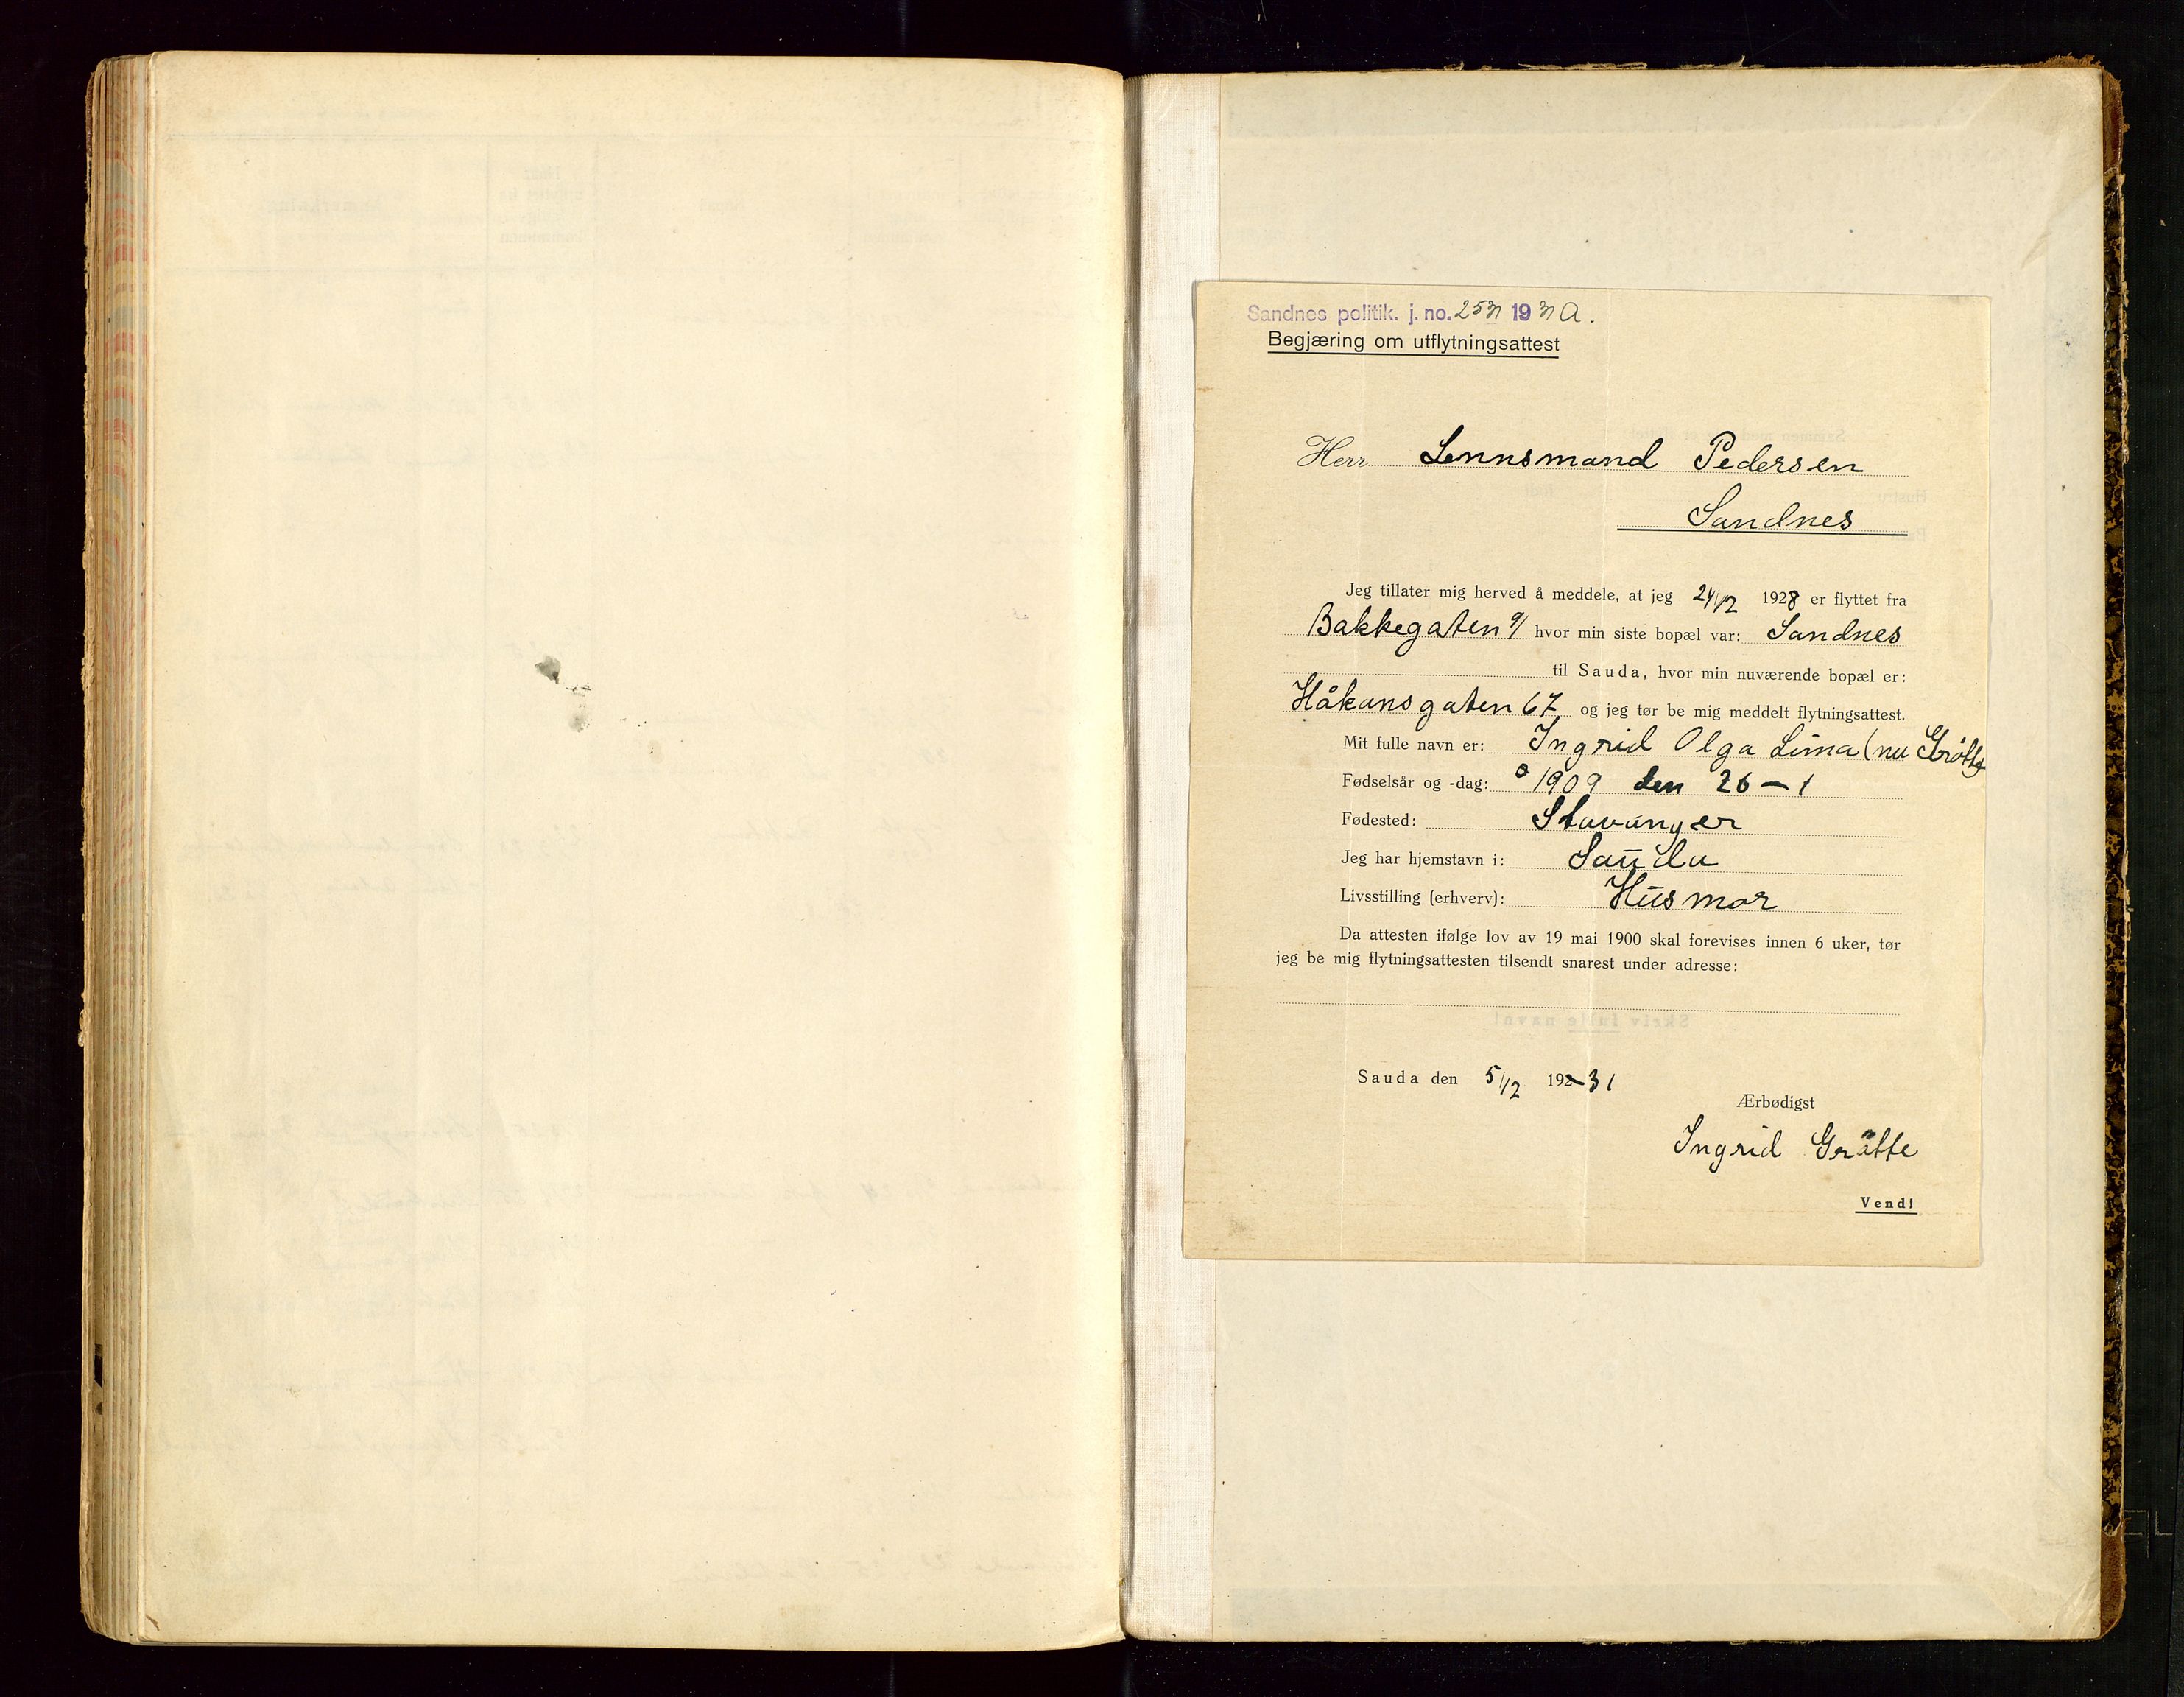 Sandnes politik. j. no. 253 1931 A.
Begjæring om utflytningsattest
Herr Lennsmand Pedersen
Sandnes
Jeg tillater mig herved å meddele, at jeg 24/12 1928 er flyttet fra
Bakkegaten 9/ hvor min siste bopæl var: Sandnes
til Sauda, hvor min nuværende bopæl er:
Håkonsgaten 67 og jeg tør be mig meddelt flytningsattest.
Mit fulle navn er: Ingrid Olga Lima (nu Gròtte
Fødselsår og -dag: 1909 den 26 – 1
Fødested: Stavanger
Jeg har hjemstavn i: Sauda
Livsstilling (erhverv): Husmor
Da attesten ifølge lov av 19 mai 1900 skal forevises innen 6 uker, tør
jeg be mig flytningsattesten tilsendt snarest under adresse:
Sauda den 5/12 192-31
Ærbødigst
Ingrid Grøtte
Vend!